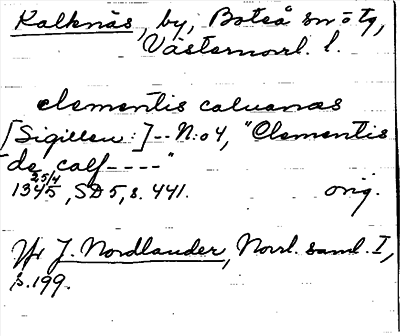 Kalknäs, by, Boteå sn o tg,
Västernorrl. l.
clementis caluanæs
[Sigillen:]--N:o 4, "Clementis
de calf----"
1345 25/4, SD 5, s. 441. orig.
Jfr J. Nordlander, Norrl. saml. I,
s. 199.